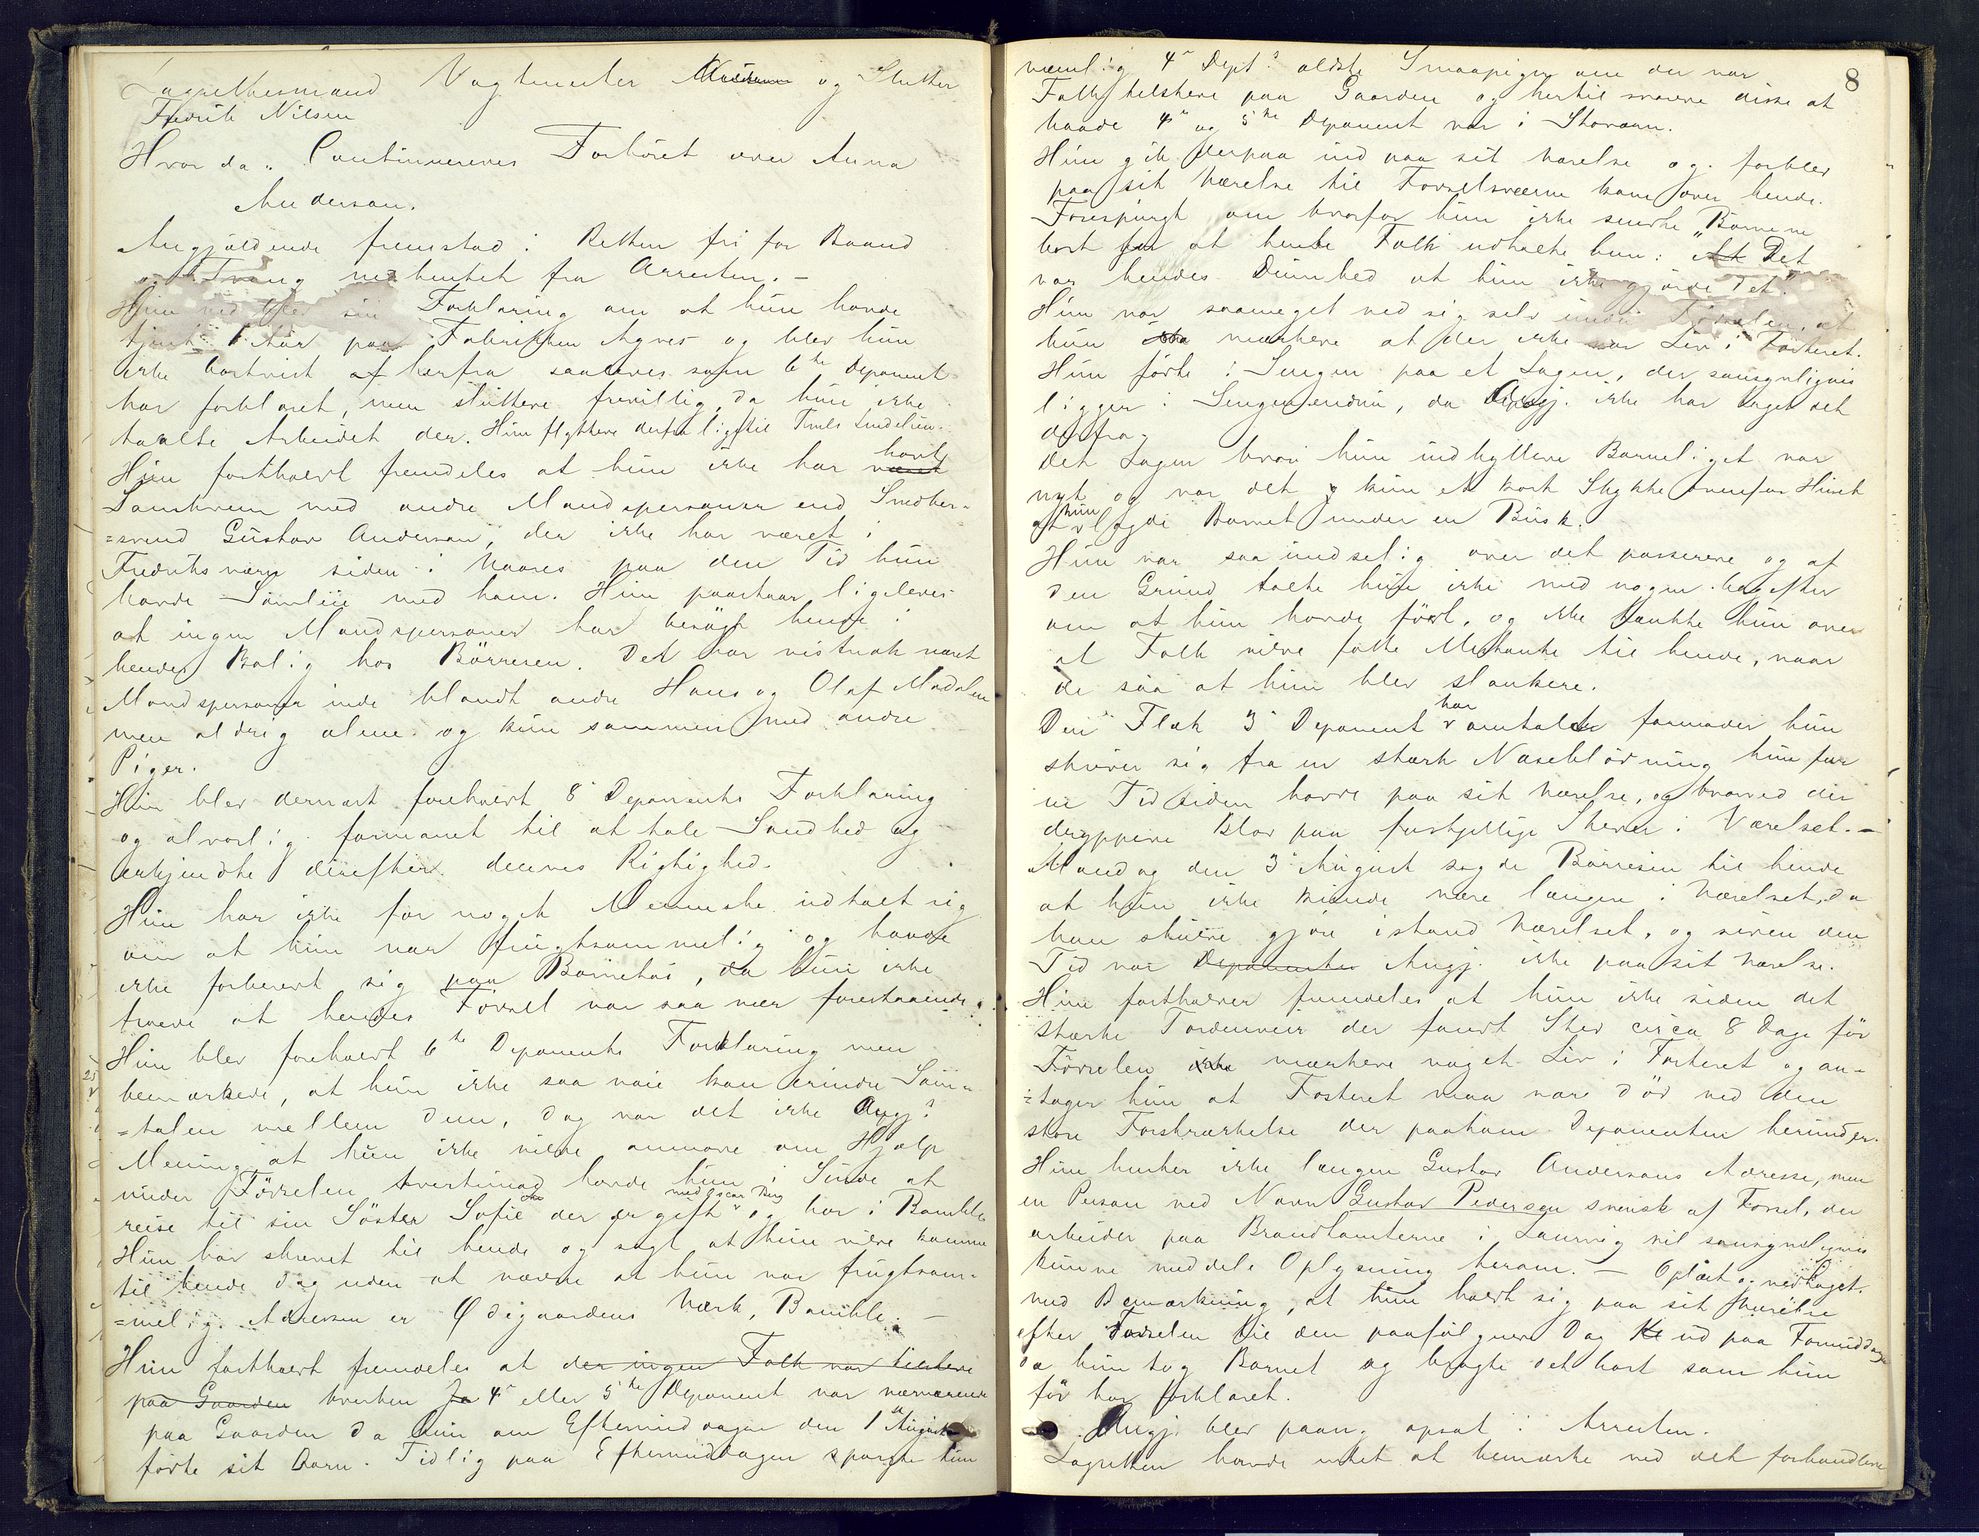 Lagrettesmænd Vagtmester og Slutter
Fredrik Nilsen
Hvor da: Continueredes Forhöret over Anna
Anderson.
Angjældende fremstod i Retten fri for Baand
og Tvang nedhentet fra Arresten. –
Hun ved blev sin Forklaring om at hun havde
tjent 1 Aar paa Fabrikken Agnes og blev hun
ikke bortvist af herfra saaledes som 6te Deponent
har forklaret, men sluttede frivillig, da hun ikke
taalte Arbeidet der. Hun flyttede derfra lige til
Hun fastholdt fremdeles at hun ikke har været havt
Samkvem med andre Mandspersoner end Smedker-
=svend Gustav Anderson, der ikke har været i
Fredriksværn siden i Vaares paa den Tid hun
havde Samleie med ham. Hun paastaar ligeledes
at ingen Mandspersoner har besögt hende i
hendes Bolig hos Börresen. Det har vistnok været
Mandspersoner inde blandt andre Hans og Olaf Madsen
men aldrig alene og kun sammen med andre
Piger.
Hun blev dernæst foreholdt 8 Deponents Forklaring
og alvorlig formanet til at tale Sandhed og
erkjendte derefter dennes Rigtighed.
Hun har ikke for noget Menneske udtalt sig
om at hun var frugtsommelig og havde
ikke forberedt sig paa Barnetöi, da hun ikke
troede at hendes Försel var saa nær forestaaende.
Hun blev foreholdt 6te Deponents Forklaring men
bemærkede, at hun ikke saa nöie kan erindre Sam-
=talen mellem dem, dog var det ikke Angj:s
Mening at hun ikke vilde anmode om Hjælp
under Förselen tvertimod havde hun i Sinde at
reise til sin Söster Sofie der er gift med Oscar Berg og bor i Bamble
Hun har skrevet til hende og sagt at hun vilde komme
til hende dog uden at nævne at hun var frugtsom-
=melig. Adressen er Ødegaardens Værk, Bamble. –
Hun fastholdt fremdeles at der ingen Folk var tilstede
paa Gaarden hverken Ja 4de eller 5te Deponent var nærværende
paa Gaarden da hun om Eftermiddagen den 1ste August
födte sit Barn. Tidlig paa Eftermiddagen spurgte hun
8
nemlig 4de Dept:s ældste Smaapiger om der var
Folk tilstede paa Gaarden og hertil svarede disse at
baade 4de og 5te Deponent var i Skoven.
Hun gik derpaa ind paa sit Værelse og forblev
paa sit Værelse til Förselsveerne kom over hende.
Forespurgt om hvorfor hun ikke sendte Börnene
bort for at hente Folk udtalte hun: "At Det
var hendes Dumhed at hun ikke gjorde det".
Hun var saameget ved sig selv under Förselen, at
hun ikke mærkede at der ikke var Liv i Fosteret.
Hun födte i Sengen paa et Lagen, der sansynligvis
ligger i Sengen endnu, da Angj. ikke har taget det
derfra.
Det Lagen hvori hun indhyllede Barneliget var
nyt og var det kun et kort Stykke ovenfor Huset
at hun lagde Barnet under en Busk.
Hun var saa undselig over det passerede og af
den Grund talte hun ikke med nogen bagefter
om at hun havde född, og ikke tænkte hun over
at Folk vilde fatte Mistanke til hende, naar
de saa at hun blev slankere.
Den Flæk 3de Deponent har omtalt formoder hun
skriver sig fra en stærk Næseblödning hun for
en Tid siden havde paa sit Værelse, og hvorved der
dryppede Blod paa forskjellige Steder i Værelset. –
Mandag den 3de August sagde Börresen til hende
at hun ikke kunde være længere i Værelset, da
han skulde gjöre istand Værelset, og siden den
Tid var Deponenten Angj. ikke paa sit Værelse.
Hun fastholder fremdeles at hun ikke siden det
stærke Tordenveir der fandt Sted circa 8 Dage för
Förselen ikke mærkede noget Liv i Fosteret og an-
=tager hun at Fosteret maa være död ved den
store Forskrækkelse der paakom Deponenten herunder.
Hun husker ikke længer Gustav Andersons Adresse, men
en Person ved Navn Gustav Pederson svensk af Födsel, der
arbeider paa Brandtomterne i Laurvig vil sansynligvis
kunne meddele Oplysning herom. – Oplæst og vedtaget
med Bemærkning, at hun holdt sig paa sit Værelse
efter Förselen til den paafölgende Dag ud paa Formiddagen
da hun tog Barnet og bragte det bort som hun
för har forklaret.
Angj. blev paany opsat i Arresten.
Lagretten havde intet at bemærke ved det forhandlede